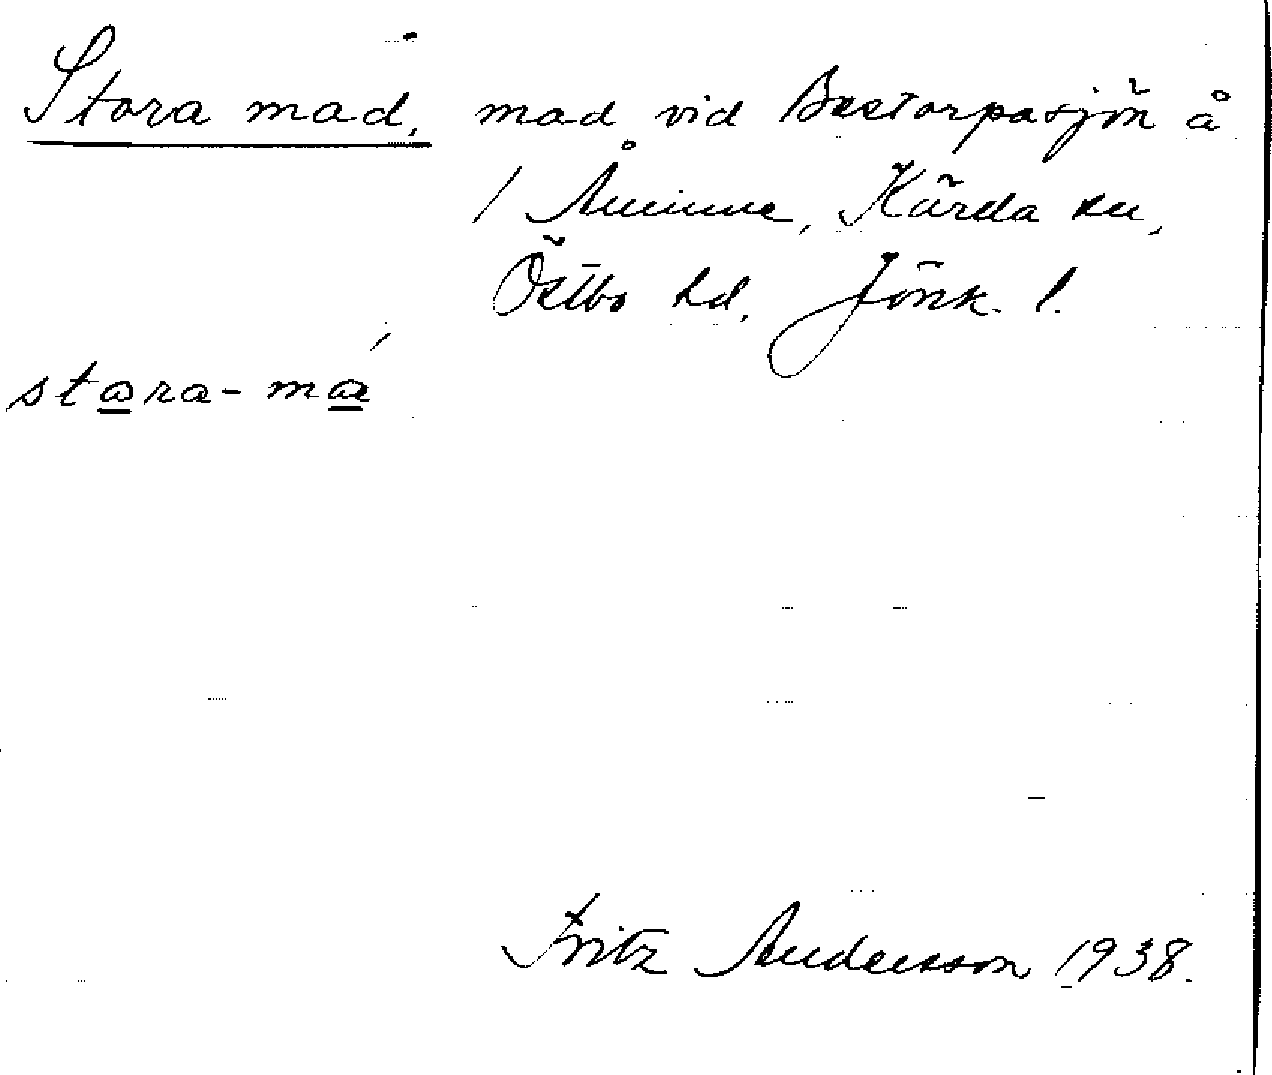 Stora mad, mad vid Bestorpasjön å
1 Åminne, Kärda sn,
Östbo hd, Jönk. l.
stara-ma
Fritz Andersson 1938.